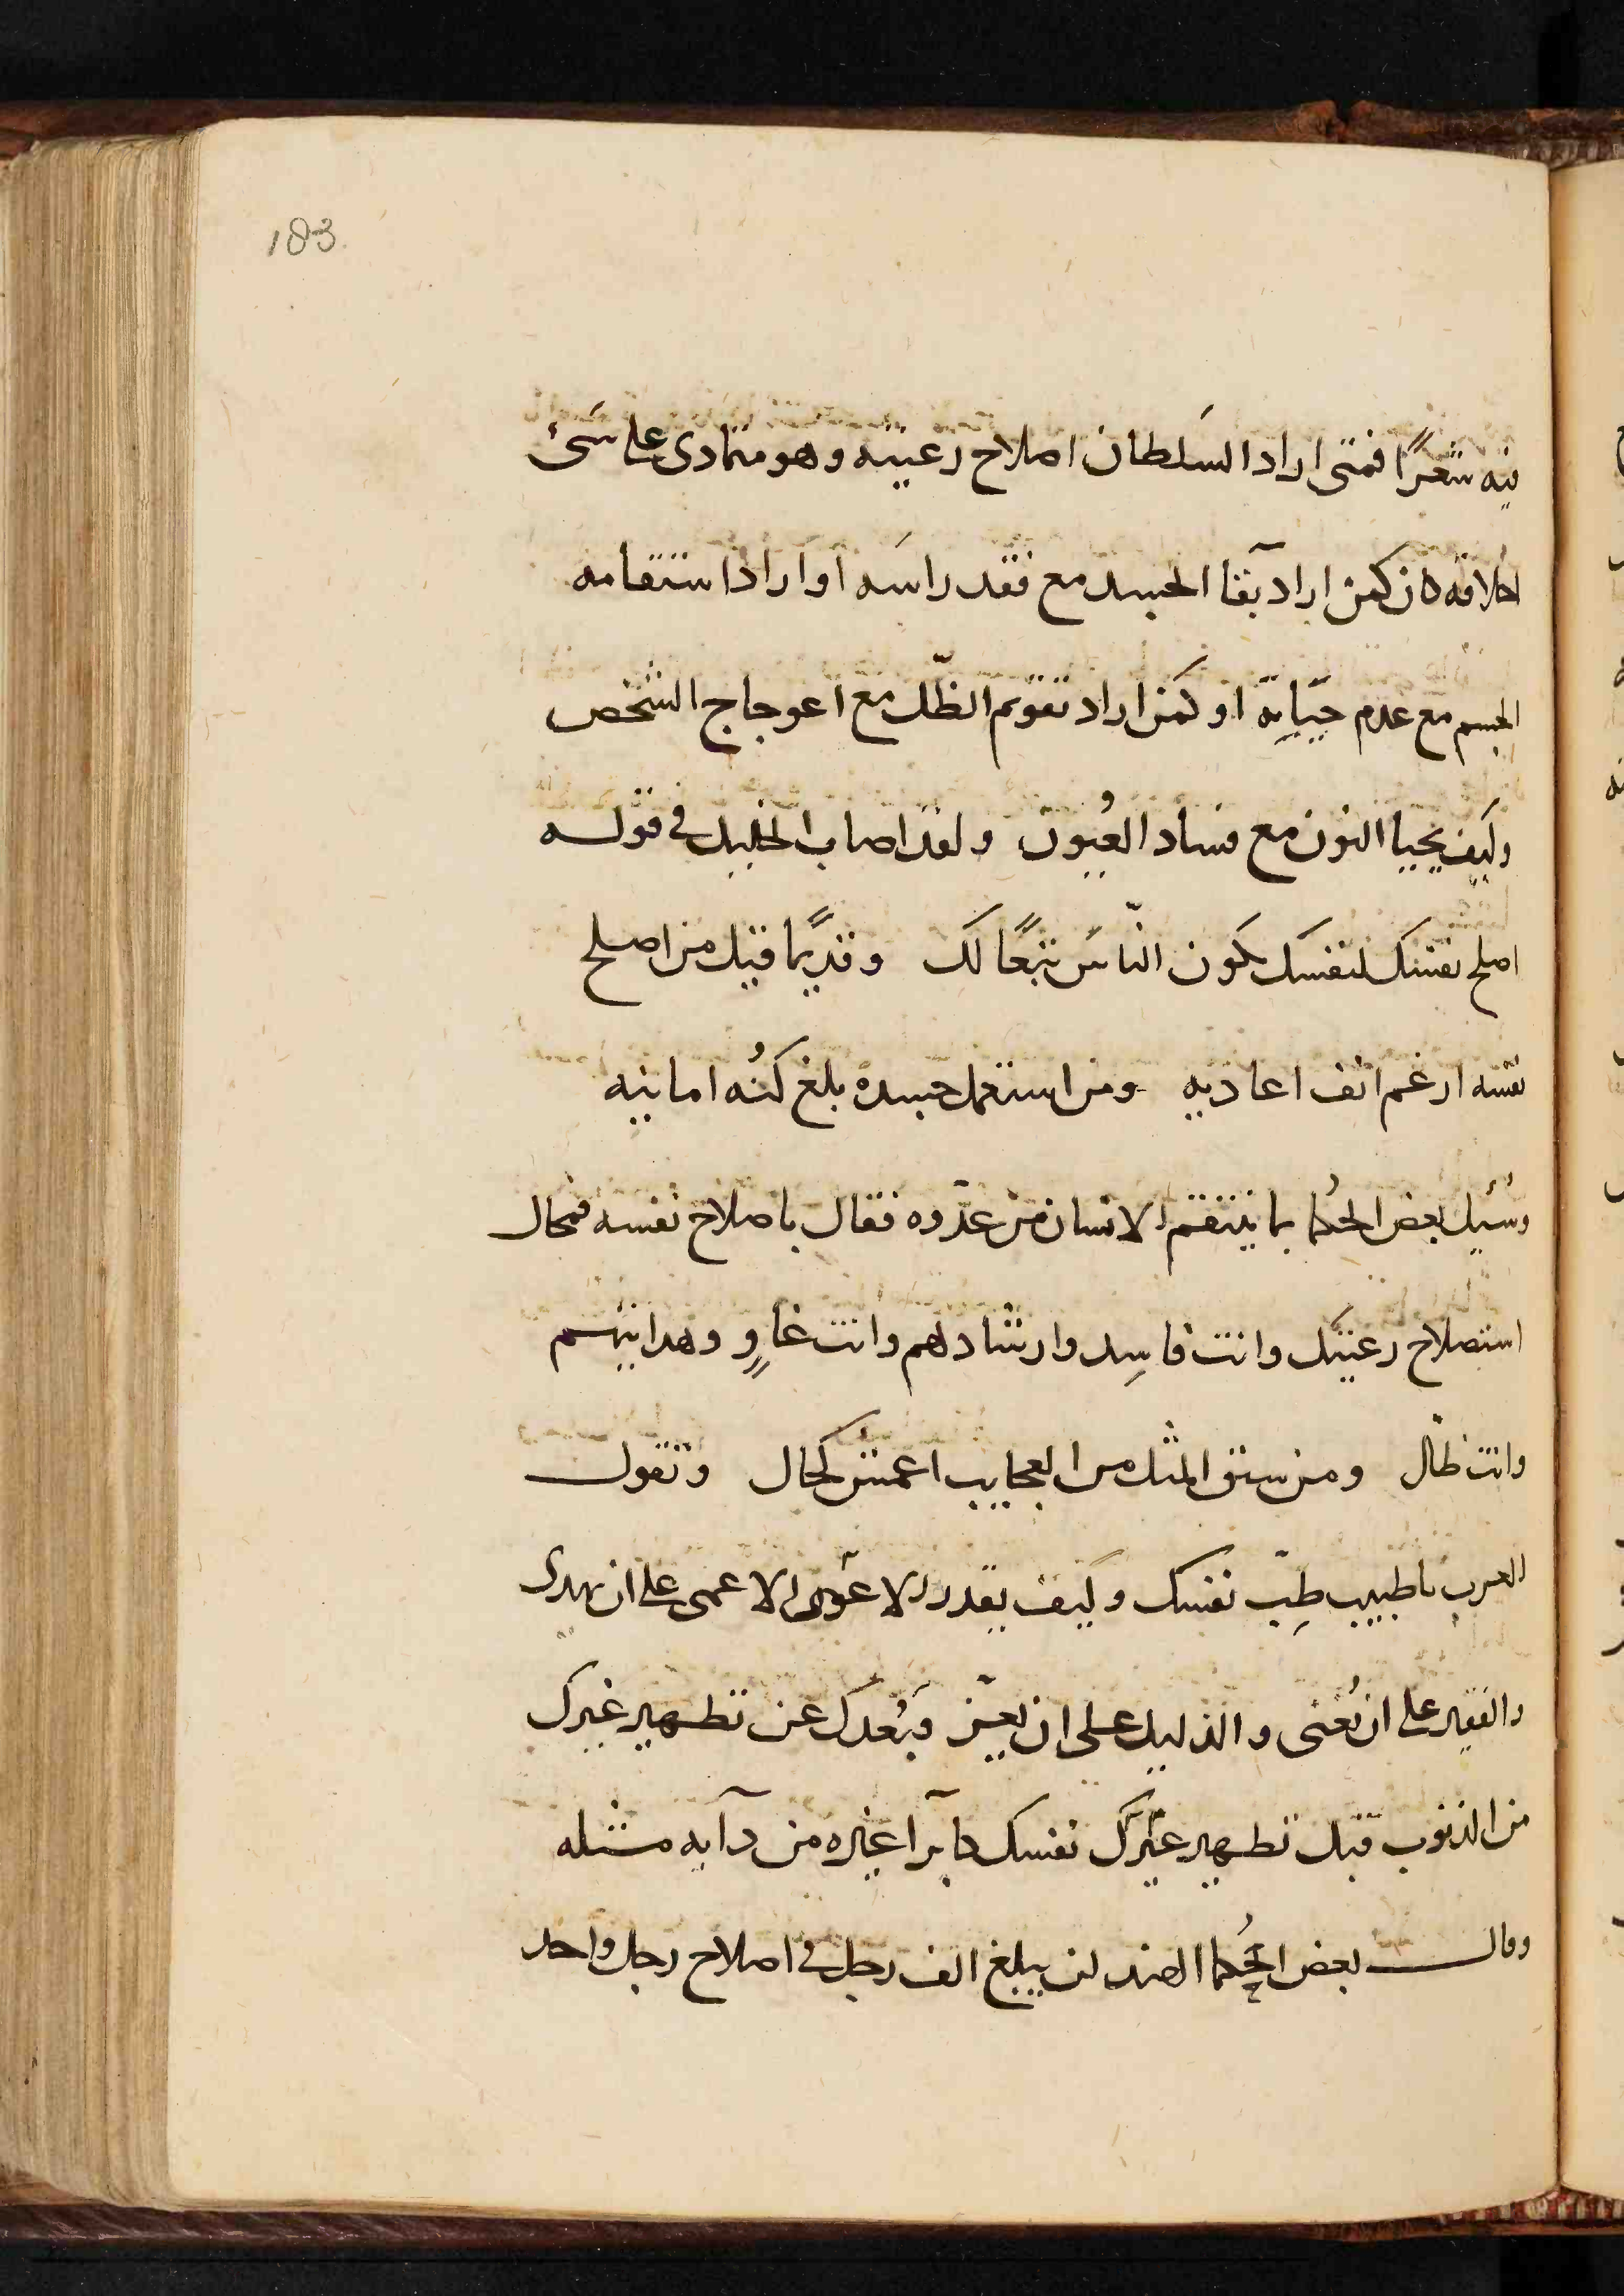 183
فيه شعرًا فمتى اراد السلطان اصلاح رعيته وهو متمادى على سئ
اخلاقه كان كمن اراد بقآ الجسد مع فقد راسه او اراد استقامه
الجسم مع عدم حيّاته او كمن اراد تقويم الظّل مع اعوجاج الشخص
وكيف يحيا النون مع فساد العُيون ولقد اصاب الخليل فى قوله
اصلح نفسك لنفسك يكون النّاس تبعًا لك وقديمًا قيل من اصلح
نفسه ارغم انف اعاديه ومن استعمل جسده بلغ كُنه امانيه
وسُئيل بعض الحُكما بما ينتقم الانسان من عدّوه فقال باصلاح نفسه فمحال
استصلاح رعيتك وانت فاسِد وارشادهم وانت غاوٍ وهدايتهم
وانت ظال ومن سبق المثل من العجايب اعمش كحال وتقول
العرب ياطبيب طِبّ نفسك وكيف يقدر الاعمى على ان يهدى
والفقير على ان يُغنى والذليل على ان يعّز فبُعدك عن تطهير غيرك
من الذنوب قبل تطهير نفسك كابرآ غيره من دآيه مثله
وقال بعض الحُكما الهند لن يبلغ الف رجل فى اصلاح رجل واحد